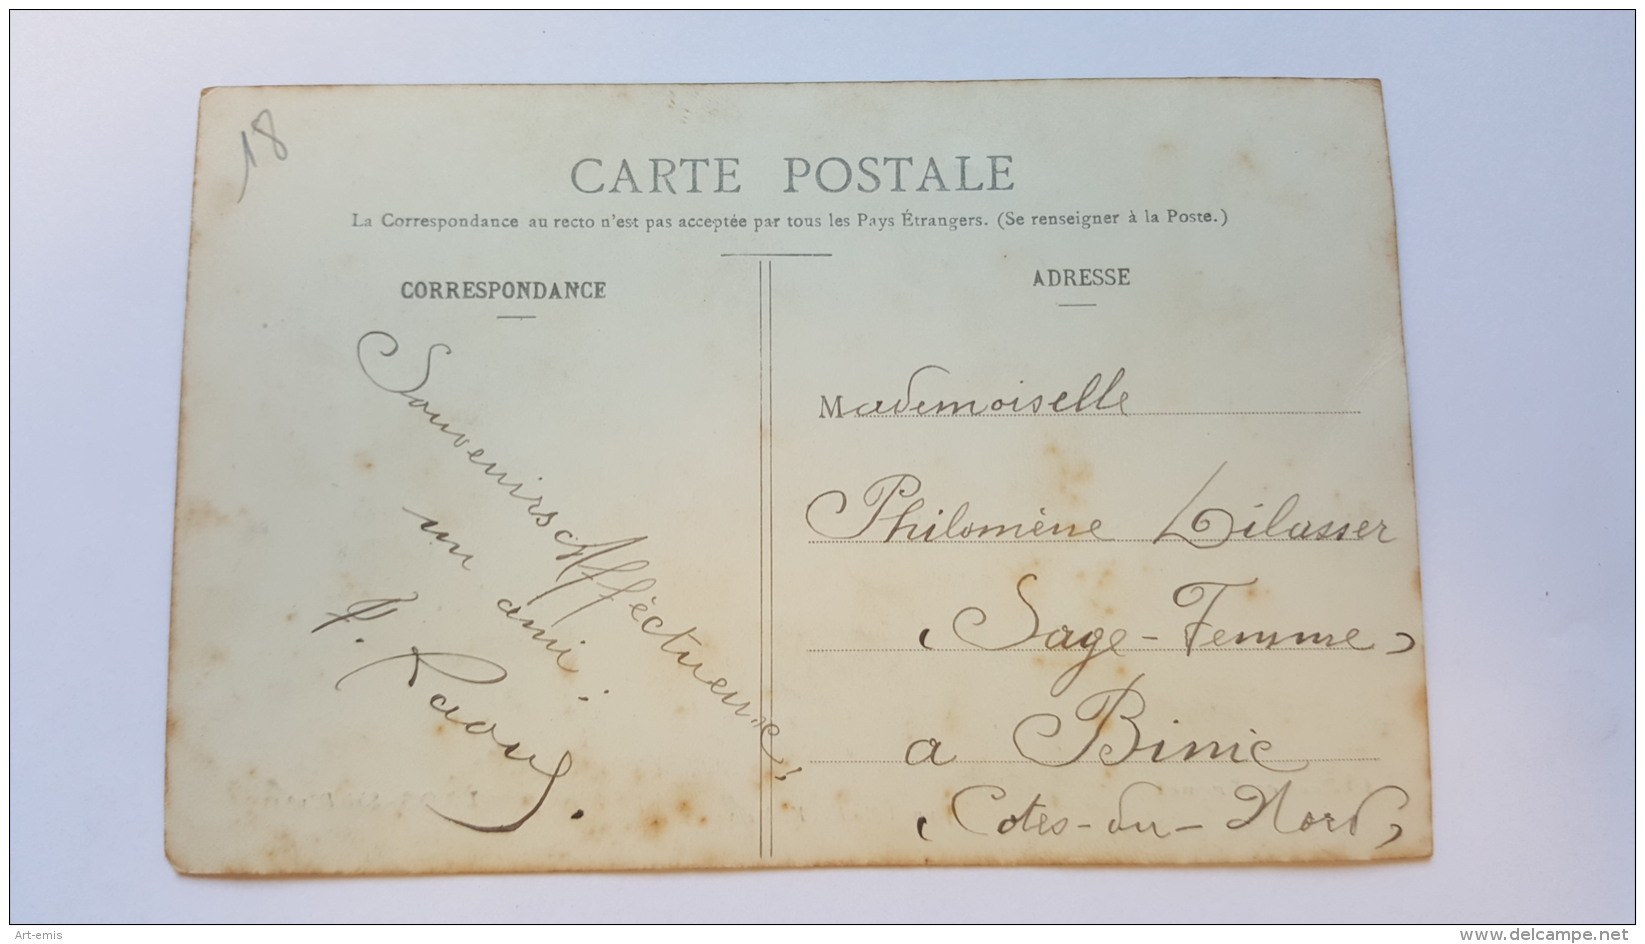 18
CARTE POSTALE
La Correspondance au recto n'est pas acceptée par tous les Pays Étrangers. (Se renseigner à la Poste.)
CORRESPONDANCE
Souvenirs Affectueux,
un ami:
F. Raoul.
ADRESSE
Mademoiselle
Philomène Lilasser
(Sage-Femme)
a Binic
(Cotes-du-Nord)
Art-emis
www.delcampe.net